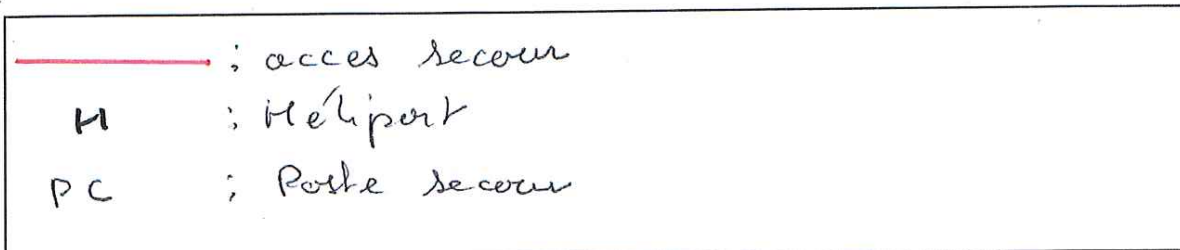 ; acces secour
H ; Héliport
PC ; Poste secour